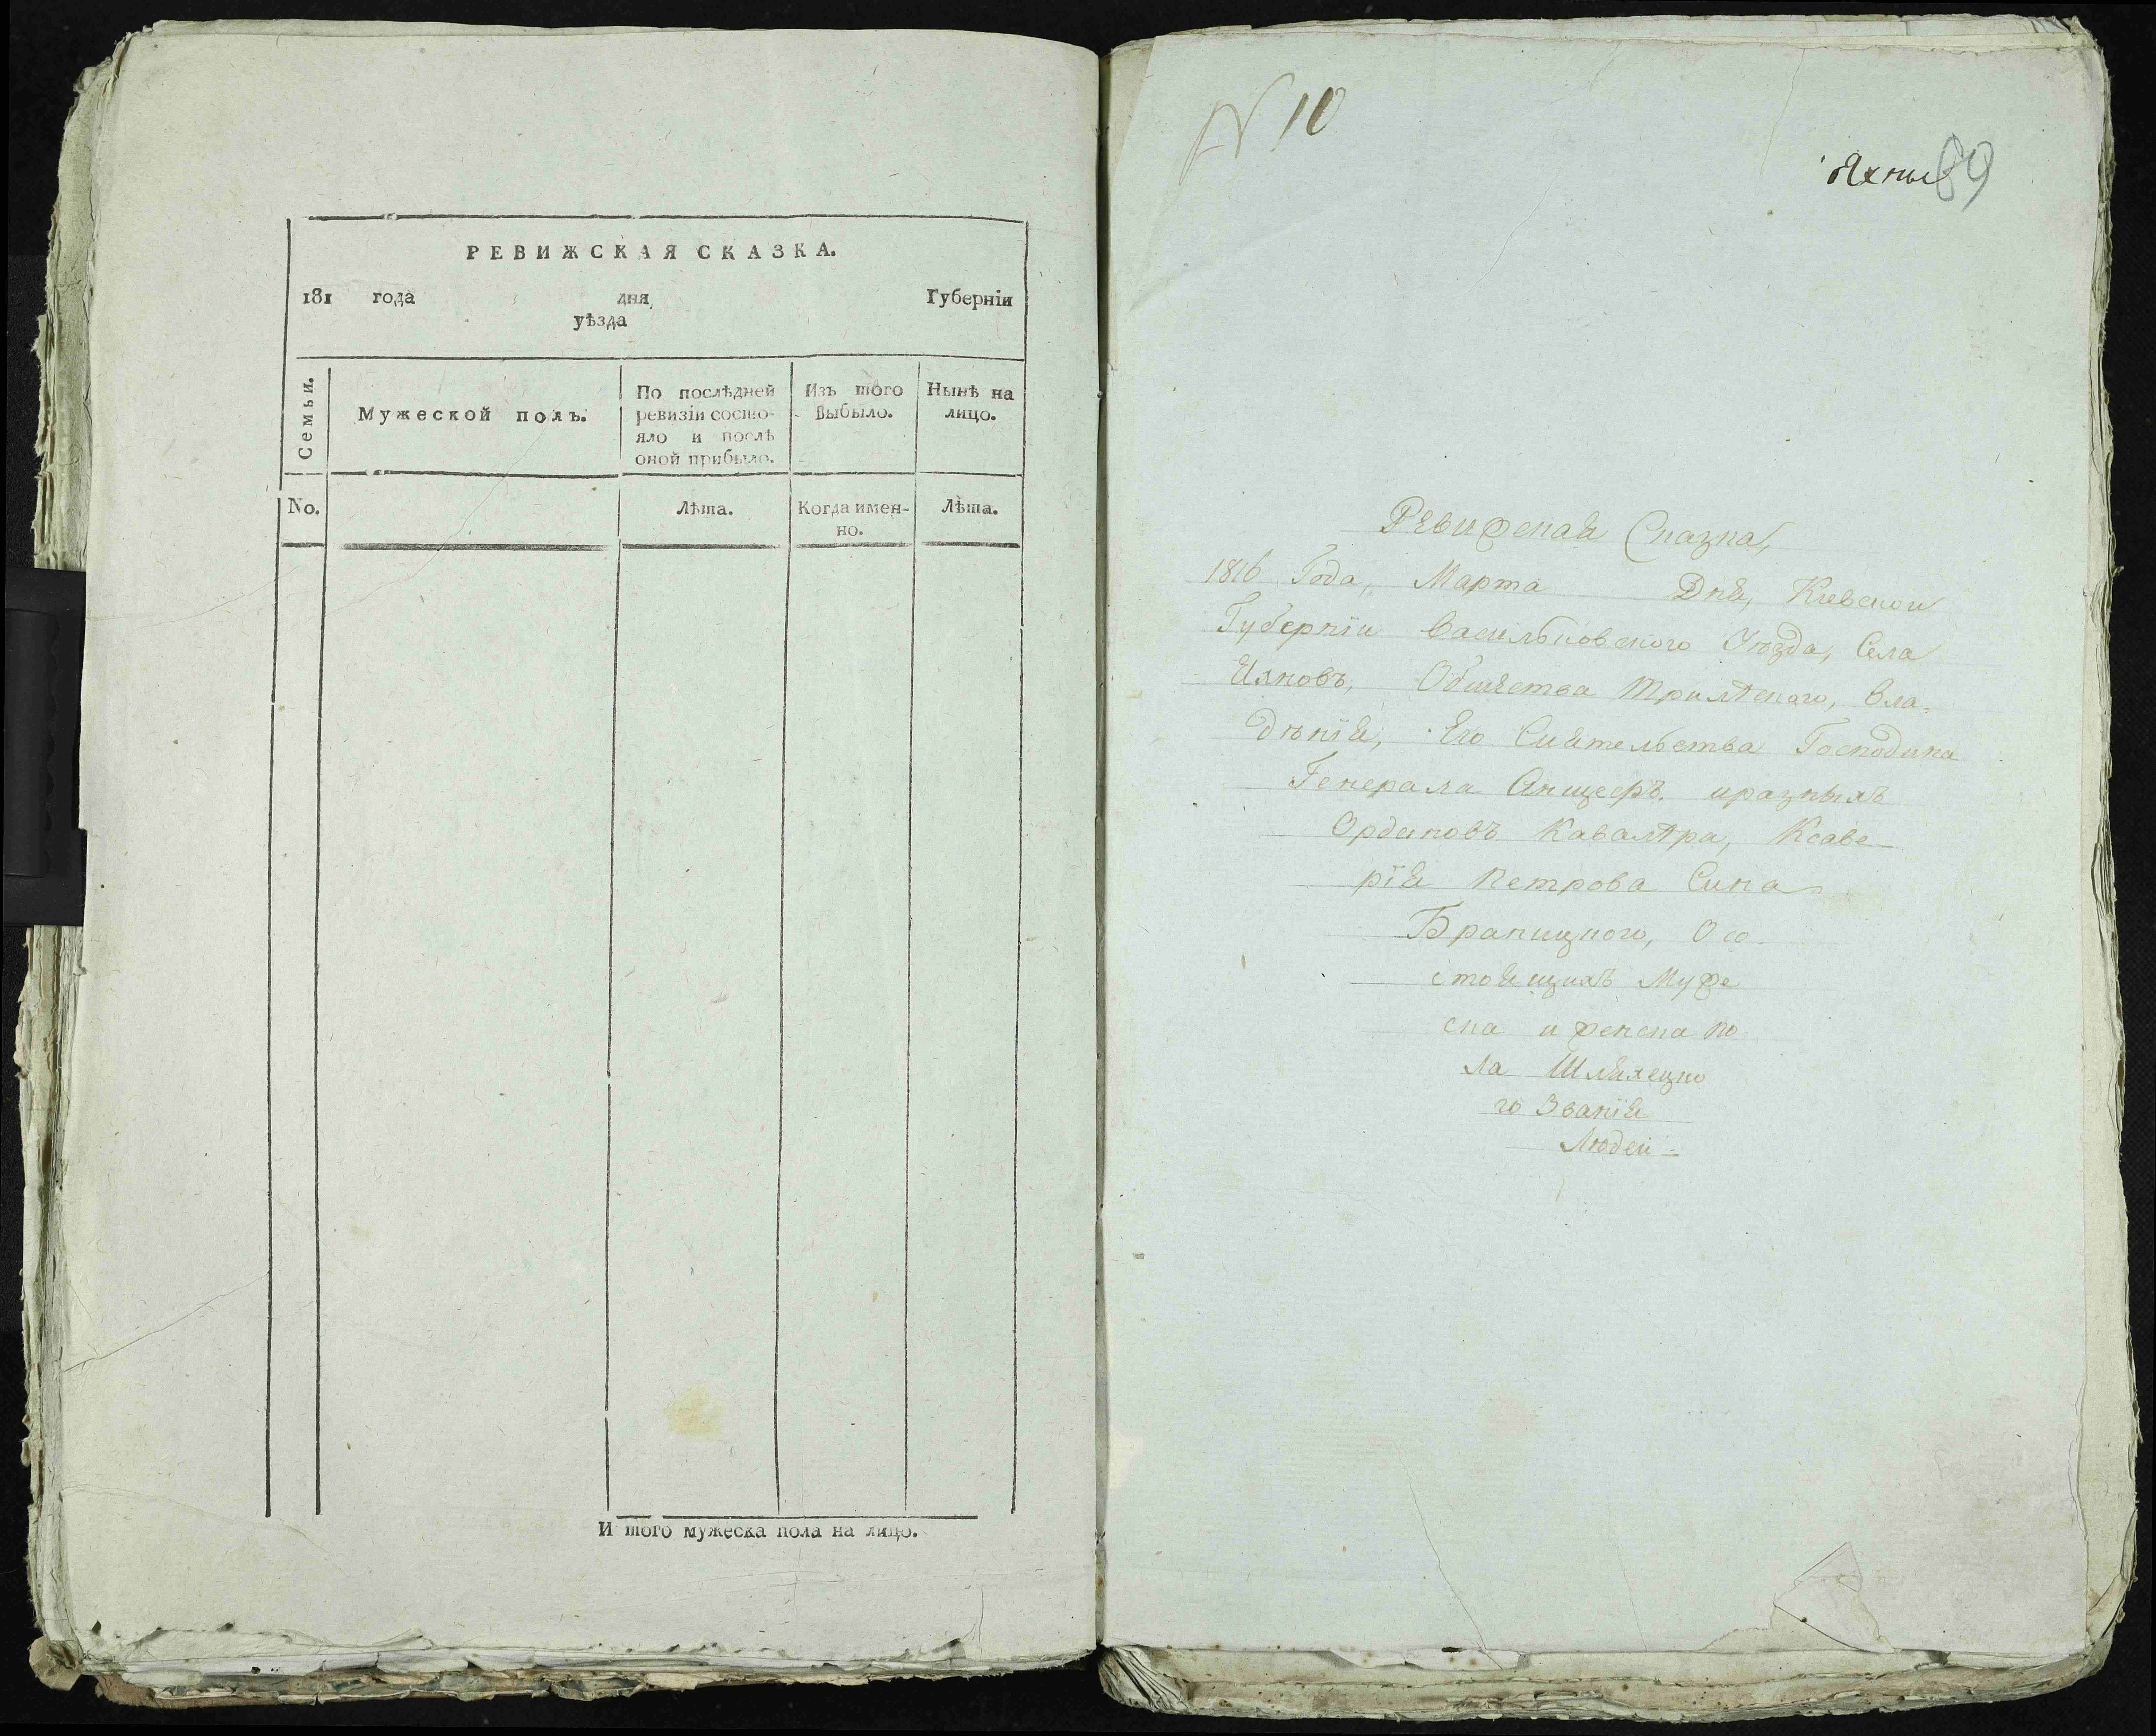 РЕВИЖСКАЯ СКАЗКА.
181 года дня Губерніи
уѣзда
Семьи.
Мужеской полъ.
По послѣдней
ревизіи состо-
яло и послѣ
оной прибыло.
Изъ того
Выбыло.
Нынѣ на
лицо.
No.
Лѣта.
Когда имен-
но.
Лѣта.
И того мужеска пола на лицо.
N 10
Яхны 69
Ревижская Сказка,
1816 Года, Марта Дня, Киевскои
Губерніи Васильковского Уѣзда, Села
Яхновъ, Общества Трилѣского, Вла=
дѣнія, Его Сиятельства Господина
Генерала Аншефъ иразныхъ
Орденовъ Кавалѣра, Ксаве-
рія Петрова Сина
Браницкого, Осо-
стоящихъ Муже
ска и женска по
ла Шляхецко
го Званія
Людеи =